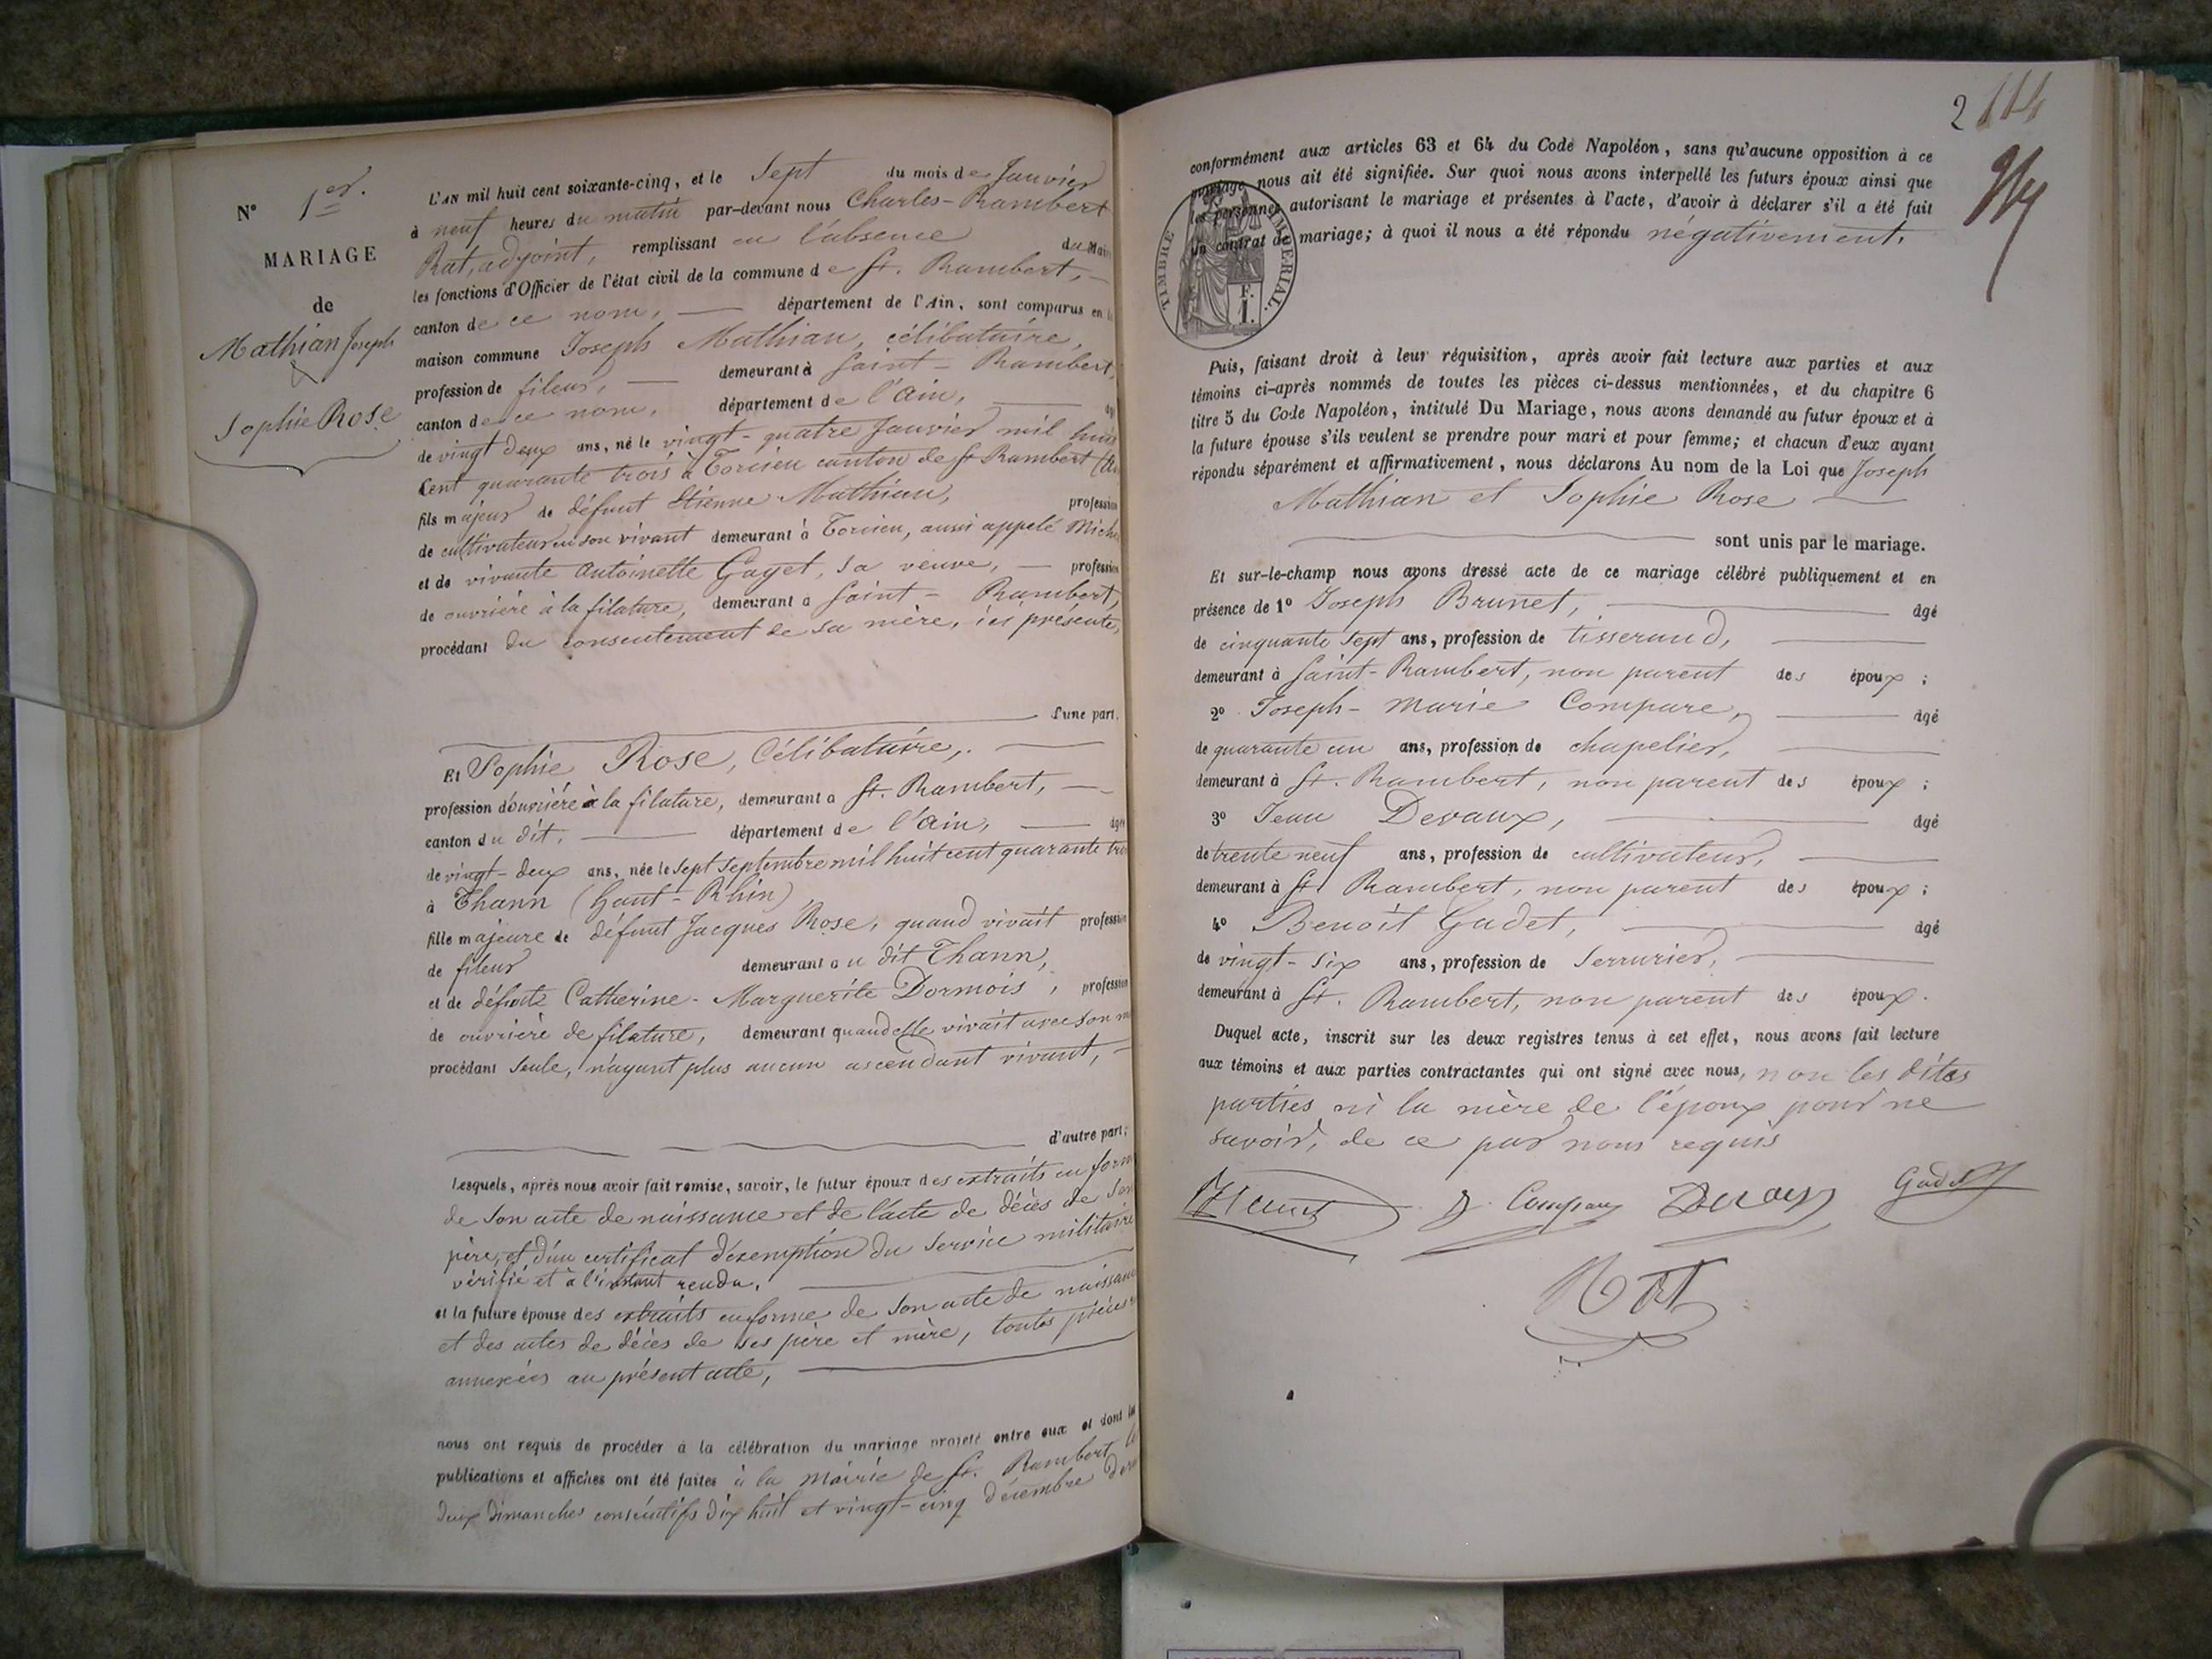 N° 1er.
MARIAGE
de
Mathian Joseph
&
Sophie Rose
L'AN mil huit cent soixante-cinq, et le Sept du mois de Janvier
à neuf heures du matin par-devant nous Charles-Rambert
Rat, adjoint, remplissant en l'absence du Maire
les fonctions d'Officier de l'état civil de la commune de St. Rambert,
canton de ce nom, département de l'Ain, sont comparus en la
maison commune Joseph Mathian, célibataire,
profession de fileur, demeurant à Saint-Rambert,
canton de ce nom, département de l'Ain, âgé
de vingt deux ans, né le vingt-quatre Janvier mil huit
cent quarante trois à Torcieu canton de St Rambert (Ain
fils majeur de défunt Etienne Mathian, profession
de cultivateur en son vivant demeurant à Torcieu, aussi appelé Mich
et de vivante Antoinette Gayet, sa veuve, profession
de ouvrière à la filature, demeurant à Saint-Rambert,
procédant du consentement de sa mère, ici présente,
d'une part.
Et Sophie Rose, Célibataire,
profession d'ouvrière à la filature, demeurant à St. Rambert,
canton du dit, département de l'Ain, âgée
de vingt-deux ans, née le Sept Septembre mil huit cent quarante trois
à Thann (Haut-Rhin)
fille majeure de défunt Jacques Rose, quand vivait profession
de fileur demeurant au dit Thann,
et de défunte Catherine-Marguerite Dormois, profession
de ouvrière de filature, demeurant quand elle vivait avec son m
procédant seule, n'ayant plus aucun ascendant vivant,
d'autre part;
Lesquels, après nous avoir fait remise, savoir, le futur époux des extraits en forme
de son acte de naissance et de l'acte de décès de son
père, et d'un certificat d'exemption du service militaire
vérifié et à l'instant rendu.
et la future épouse des extraits en forme de son acte de naissance
et des actes de décès de ses père et mère, toutes pièces
annexées au présent acte,
nous ont requis de procéder à la célébration du mariage projeté entre eux et dont les
publications et affiches ont été faites à la mairie de St. Rambert les
deux dimanches consécutifs dix huit et vingt-cinq décembre der
2 114
conformément aux articles 63 et 64 du Code Napoléon, sans qu'aucune opposition à ce
mariage nous ait été signifiée. Sur quoi nous avons interpellé les futurs époux ainsi que
les personnes autorisant le mariage et présentes à l'acte, d'avoir à déclarer s'il a été fait
un contrat de mariage; à quoi il nous a été répondu négativement.
TIMBRE IMPERIAL.
F.
1.
Puis, faisant droit à leur réquisition, après avoir fait lecture aux parties et aux
témoins ci-après nommés de toutes les pièces ci-dessus mentionnées, et du chapitre 6
titre 5 du Code Napoléon, intitulé Du Mariage, nous avons demandé au futur époux et à
la future épouse s'ils veulent se prendre pour mari et pour femme; et chacun d'eux ayant
répondu séparément et affirmativement, nous déclarons Au nom de la Loi que Joseph
Mathian et Sophie Rose
sont unis par le mariage.
Et sur-le-champ nous avons dressé acte de ce mariage célébré publiquement et en
présence de 1° Joseph Brunet, âgé
de cinquante sept ans, profession de tisserand,
demeurant à Saint-Rambert, non parent des époux;
2° Joseph-Marie Compare, âgé
de quarante un ans, profession de chapelier,
demeurant à St. Rambert, non parent des époux;
3° Jean Devaux, âgé
de trente neuf ans, profession de cultivateur,
demeurant à St Rambert, non parent des époux;
4° Benoit Gadet, âgé
de vingt-six ans, profession de Serrurier,
demeurant à St. Rambert, non parent des époux.
Duquel acte, inscrit sur les deux registres tenus à cet effet, nous avons fait lecture
aux témoins et aux parties contractantes qui ont signé avec nous, non les dites
parties ni la mère de l'époux pour ne
savoir, de ce par nous requis
Compare Devaux Gadet
Rat